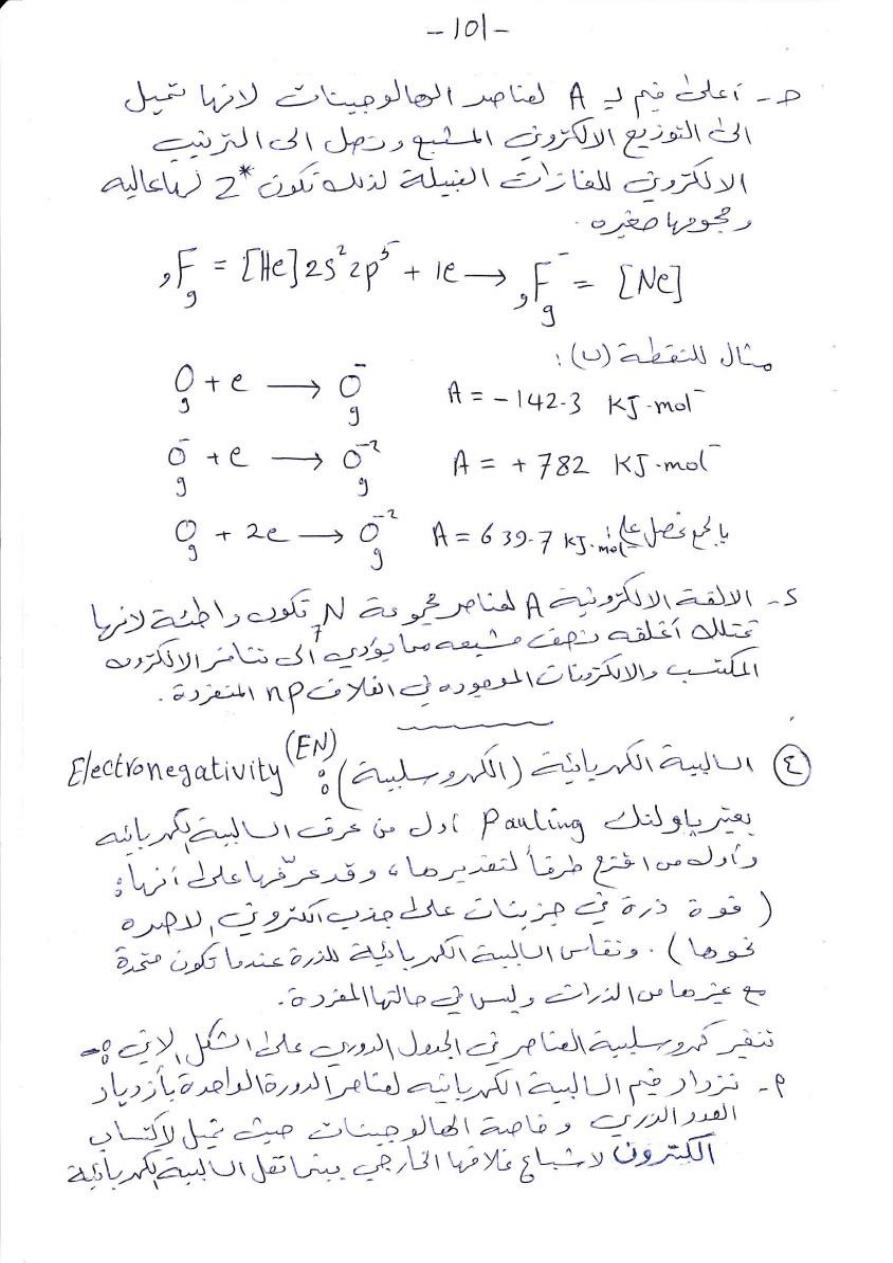 -101-
حـ - أعلى قيم لـ A لعناصر الهالوجينات لانها تميل
الى التوزيع الالكتروني المشبع وتصل الى الترتيب
الالكتروني للغازات النبيلة لذلك تكون Z* لها عاليه
وحجومها صغيره .
₉F g = [He] 2s² 2p⁵ + 1e → ₉F⁻ g = [Ne]
مثال للنقطة (ب) :
O g + e → O⁻ g A = - 142.3 KJ.mol⁻
O⁻ g + e → O⁻² g A = + 782 KJ.mol⁻
O g + 2e → O⁻² g A = 639.7 KJ.mol⁻ بالجمع نحصل على
د - الالفة الالكترونية A لعناصر مجموعة ₇N تكون واطئة لانها
تمتلك أغلفه نصف مشبعه مما يؤدي الى تنافر الالكترون
المكتسب والالكترونات الموجوده في الغلاف np المنفردة .
④ السالبية الكهربائية (الكهروسلبية) : Electronegativity (EN)
يعتبر باولنك Pauling أول من عرف السالبية الكهربائيه
وأول من اقترح طرقاً لتقديرها ، وقد عرّفها على أنها :
( قوة ذرة في جزيئات على جذب الكتروني الاصره
نحوها ) . وتقاس السالبية الكهربائية للذرة عندما تكون متحدة
مع غيرها من الذرات وليس في حالتها المفردة .
تتغير كهروسلبية العناصر في الجدول الدوري على الشكل الاتي :-
أ - تزداد قيم السالبية الكهربائيه لعناصر الدورة الواحدة بأزدياد
العدد الذري وخاصة الهالوجينات حيث تميل لاكتساب
الكترون لاشباع غلافها الخارجي بينما تقل السالبية الكهربائية